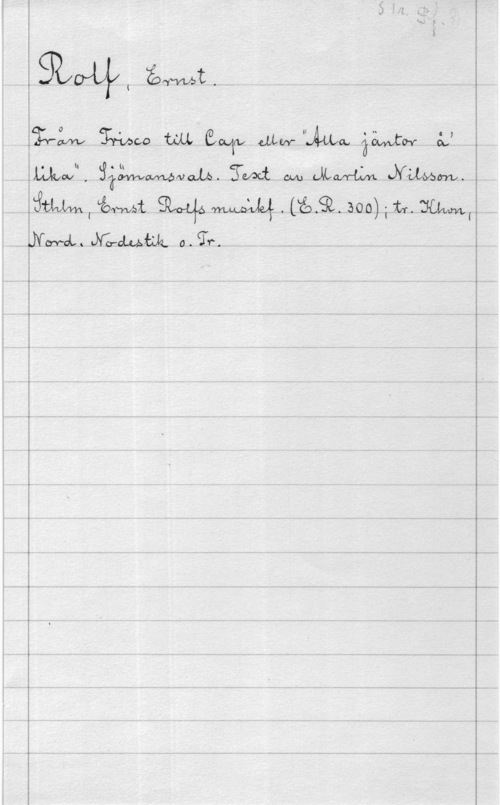 Rolf, Ernst.
Från Frisco till Cap eller "Alla jäntor ä'
lika". Sjömansvals. Text av Martin Nilsson.
Sthlm, Ernst Rolfs musikf. (E.R. 300); tr. Khvn,
Nord. Nodestik o. Tr.